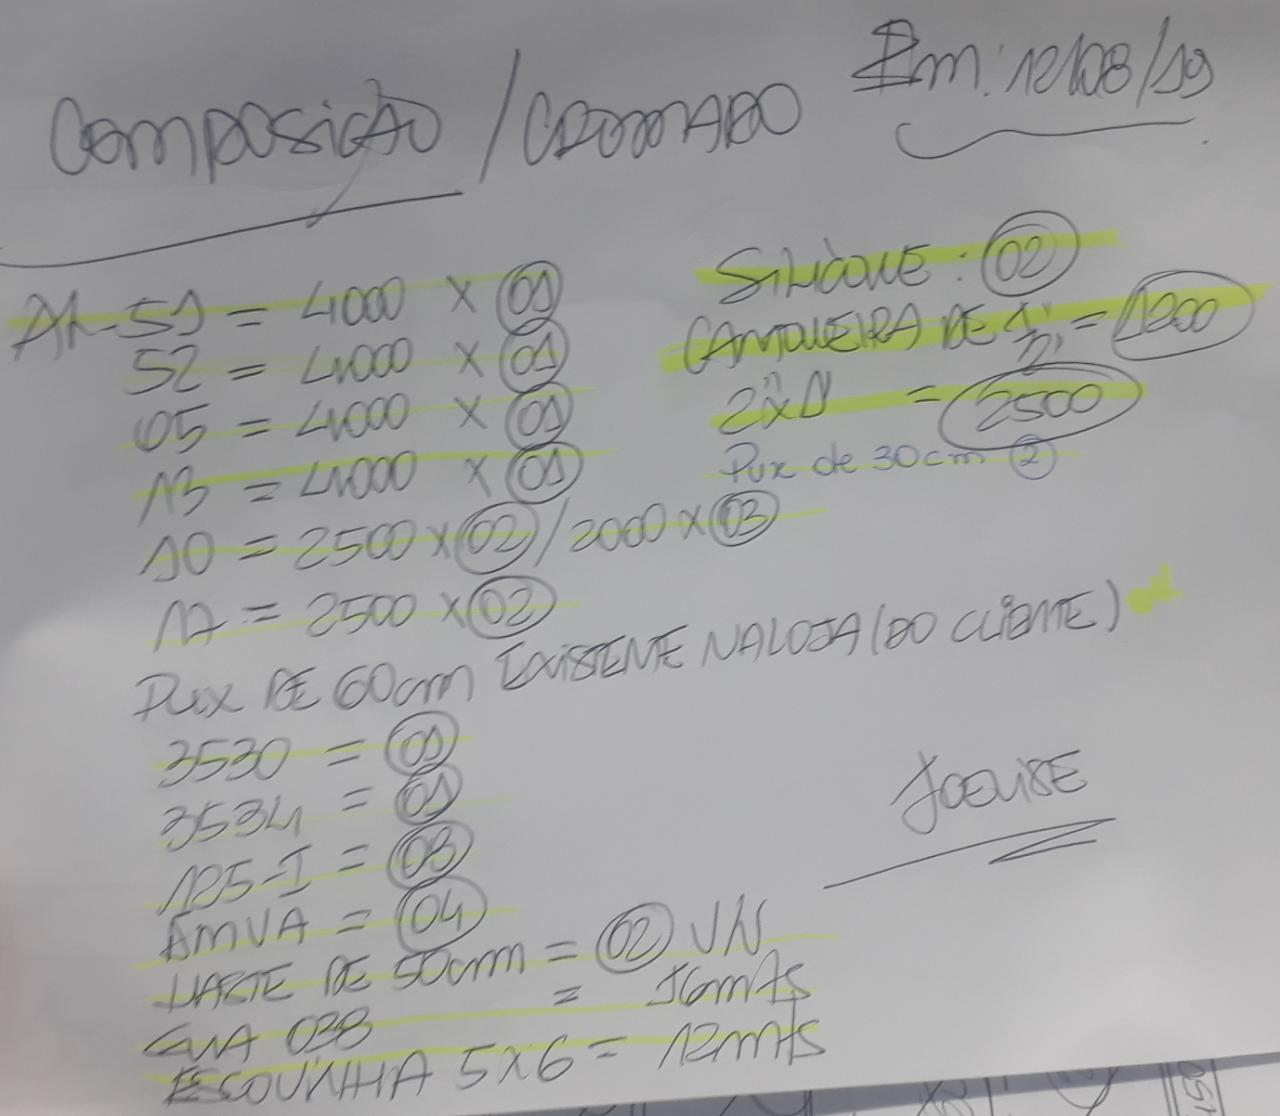 COMPOSIÇÃO / CROMADO Em: 12/08/19
AL-51 = 4000 X 01
52 = 4000 X 01
05 = 4000 X 01
13 = 4000 X 01
10 = 2500 X 02 / 2000 X 03
17 = 2500 X 02
PUX DE 60cm EXISTENTE NA LOJA (DO CLIENTE) ok
3530 = 01
3534 = 01
125-I = 03
AMVA = 04
HASTE DE 50cm = 02 UN
GUA 038 = 16mts
ESCOVINHA 5X6 = 12mts
SILICONE: 02
CANTONEIRA DE 1" 1/2" = 1200
2"X1" = 2500
Pux de 30cm 2
JOELISE